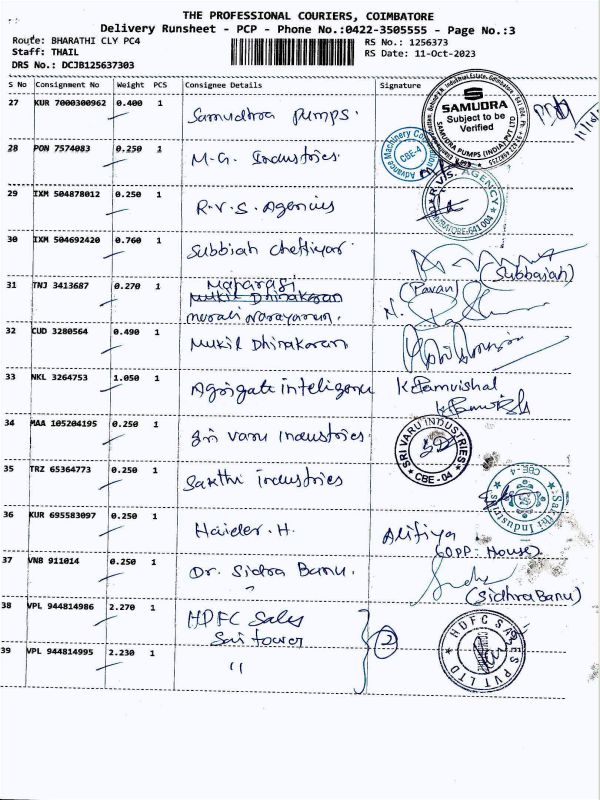 THE PROFESSIONAL COURIERS, COIMBATORE
Delivery Runsheet - PCP - Phone No.:0422-3505555 - Page No.:3
Route: BHARATHI CLY PC4 RS No.: 1256373
Staff: THAIL RS Date: 11-Oct-2023
DRS No.: DCJB125637303
S No Consignment No Weight PCS Consignee Details Signature
27 KUR 7000300962 0.400 1 Samudhra Pumps.
SAMUDRA
Subject to be
Verified
SAMUDRA PUMPS (INDIA) PVT LTD
28 PON 7574083 0.250 1 M.G. Industries
Advance Machinery
CBE-4
29 IXM 504878012 0.250 1 R.V.S. Agencies
R.V.S. AGENCY
641 004
30 IXM 504692420 0.760 1 Subbiah Chettiyar
(Subbaiah)
31 TNJ 3413687 0.270 1 Maharasi
Mukil Dhinakaran
Murali Narayanan.
(Pavan)
32 CUD 3280564 0.490 1 Mukil Dhinakaran
33 NKL 3264753 1.050 1 Agrigate inteligence K. Ramvishal
34 MAA 105204195 0.250 1 Sri varu Industries
SRI VARU INDUSTRIES
CBE - 04
35 TRZ 65364773 0.250 1 Sakthi industries
Sakthi Industries
CBE-4
36 KUR 695583097 0.250 1 Haider. H. Alifiya
(OPP. House)
37 VNB 911014 0.250 1 Dr. Sidra Banu.
(Sidhra Banu)
38 VPL 944814986 2.270 1 HDFC Sales
Sai tower
2
HDFC SALES PVT LTD
39 VPL 944814995 2.230 1 "